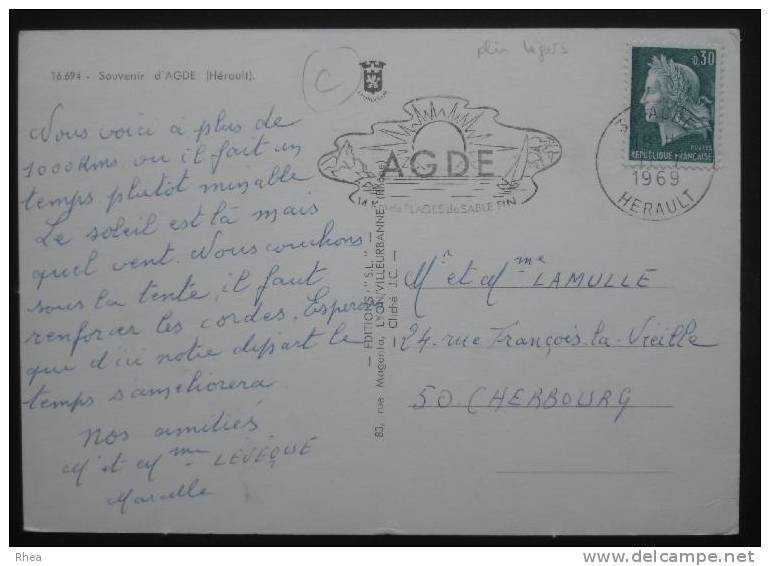 plis légers
C
16.694 - Souvenir d'AGDE (Hérault).
0,30
POSTES
REPUBLIQUE FRANÇAISE
AGDE
1969
HERAULT
AGDE
PLAGES de SABLE FIN
Nous voici à plus de
1000 Kms ou il fait un
temps plutôt minable
Le soleil est là mais
quel vent. Nous couchons
sous la tente, il faut
renforcer les cordes. Espérons
que d'ici notre départ le
temps s'améliorera
Nos amitiés
Mr et Mme LEVÊQUE
Marcelle
— EDITIONS "S.L." —
83, rue Magenta, LYON-VILLEURBANNE (Rhône)
— Cliché J.C. —
Mr et Mme LAMULLE
24, rue François-la-Vieille
50 CHERBOURG
Rhea
delcampe.net